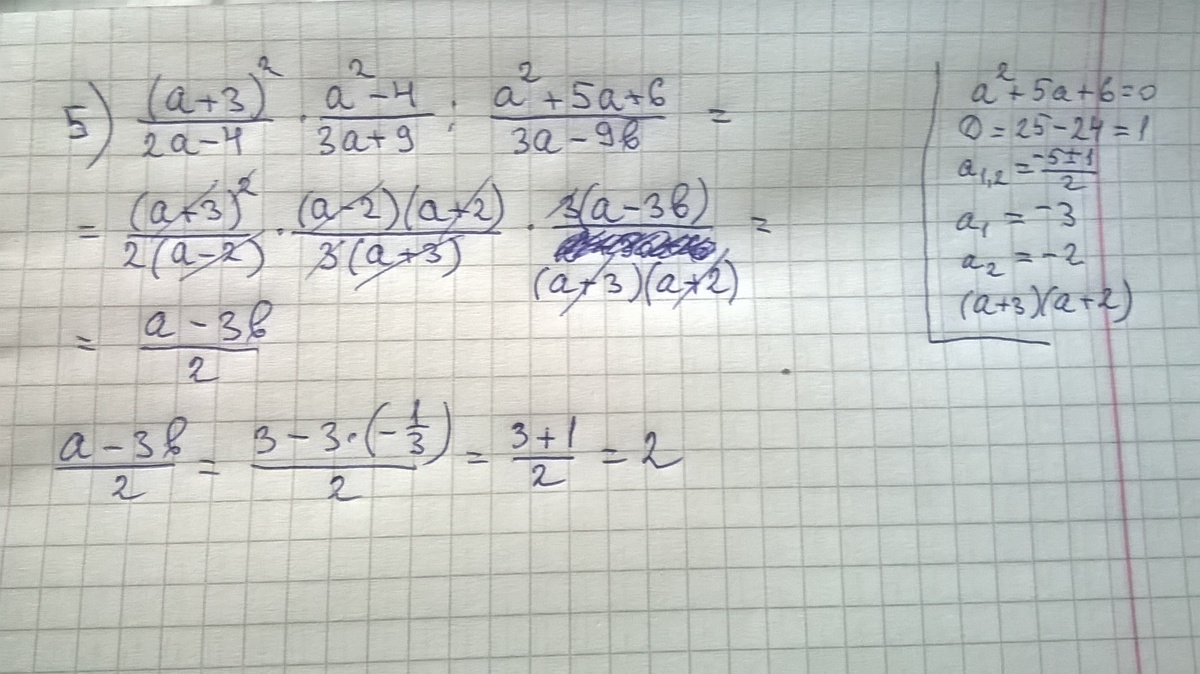 5) (a+3)²/(2a-4) · (a²-4)/(3a+9) : (a²+5a+6)/(3a-9в) =
= (a+3)²/(2(a-2)) · (a-2)(a+2)/(3(a+3)) · 3(a-3в)/((a+3)(a+2)) =
= (a-3в)/2
(a-3в)/2 = (3-3·(-1/3))/2 = (3+1)/2 = 2
a²+5a+6=0
D=25-24=1
a₁,₂=(-5±1)/2
a₁=-3
a₂=-2
(a+3)(a+2)